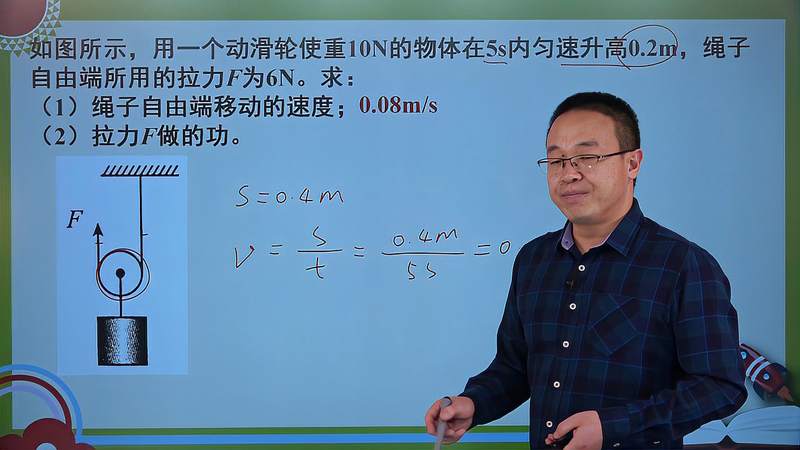 如图所示，用一个动滑轮使重10N的物体在5s内匀速升高0.2m，绳子
自由端所用的拉力F为6N。求：
（1）绳子自由端移动的速度；0.08m/s
（2）拉力F做的功。
F
S=0.4m
V=s/t=0.4m/5s=0